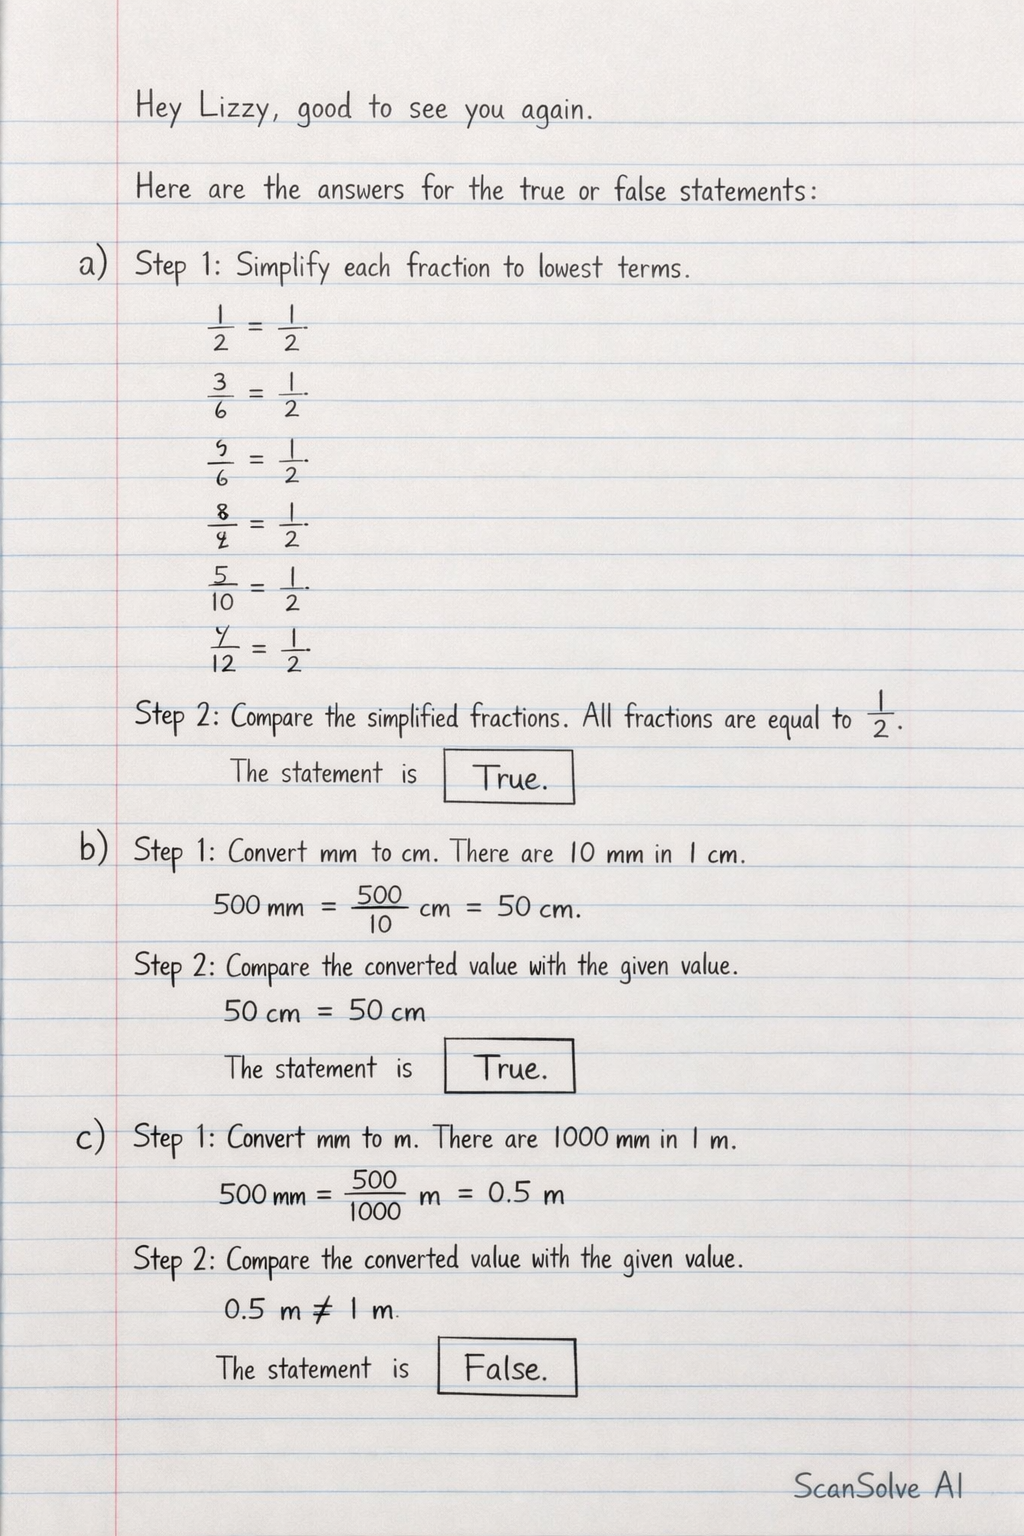 Hey Lizzy, good to see you again.
Here are the answers for the true or false statements:
a) Step 1: Simplify each fraction to lowest terms.
1/2 = 1/2
3/6 = 1/2
5/6 = 1/2
8/ = 1/2
5/10 = 1/2
/12 = 1/2
Step 2: Compare the simplified fractions. All fractions are equal to 1/2.
The statement is True.
b) Step 1: Convert mm to cm. There are 10 mm in 1 cm.
500 mm = 500/10 cm = 50 cm.
Step 2: Compare the converted value with the given value.
50 cm = 50 cm
The statement is True.
c) Step 1: Convert mm to m. There are 1000 mm in 1 m.
500 mm = 500/1000 m = 0.5 m
Step 2: Compare the converted value with the given value.
0.5 m ≠ 1 m.
The statement is False.
ScanSolve AI